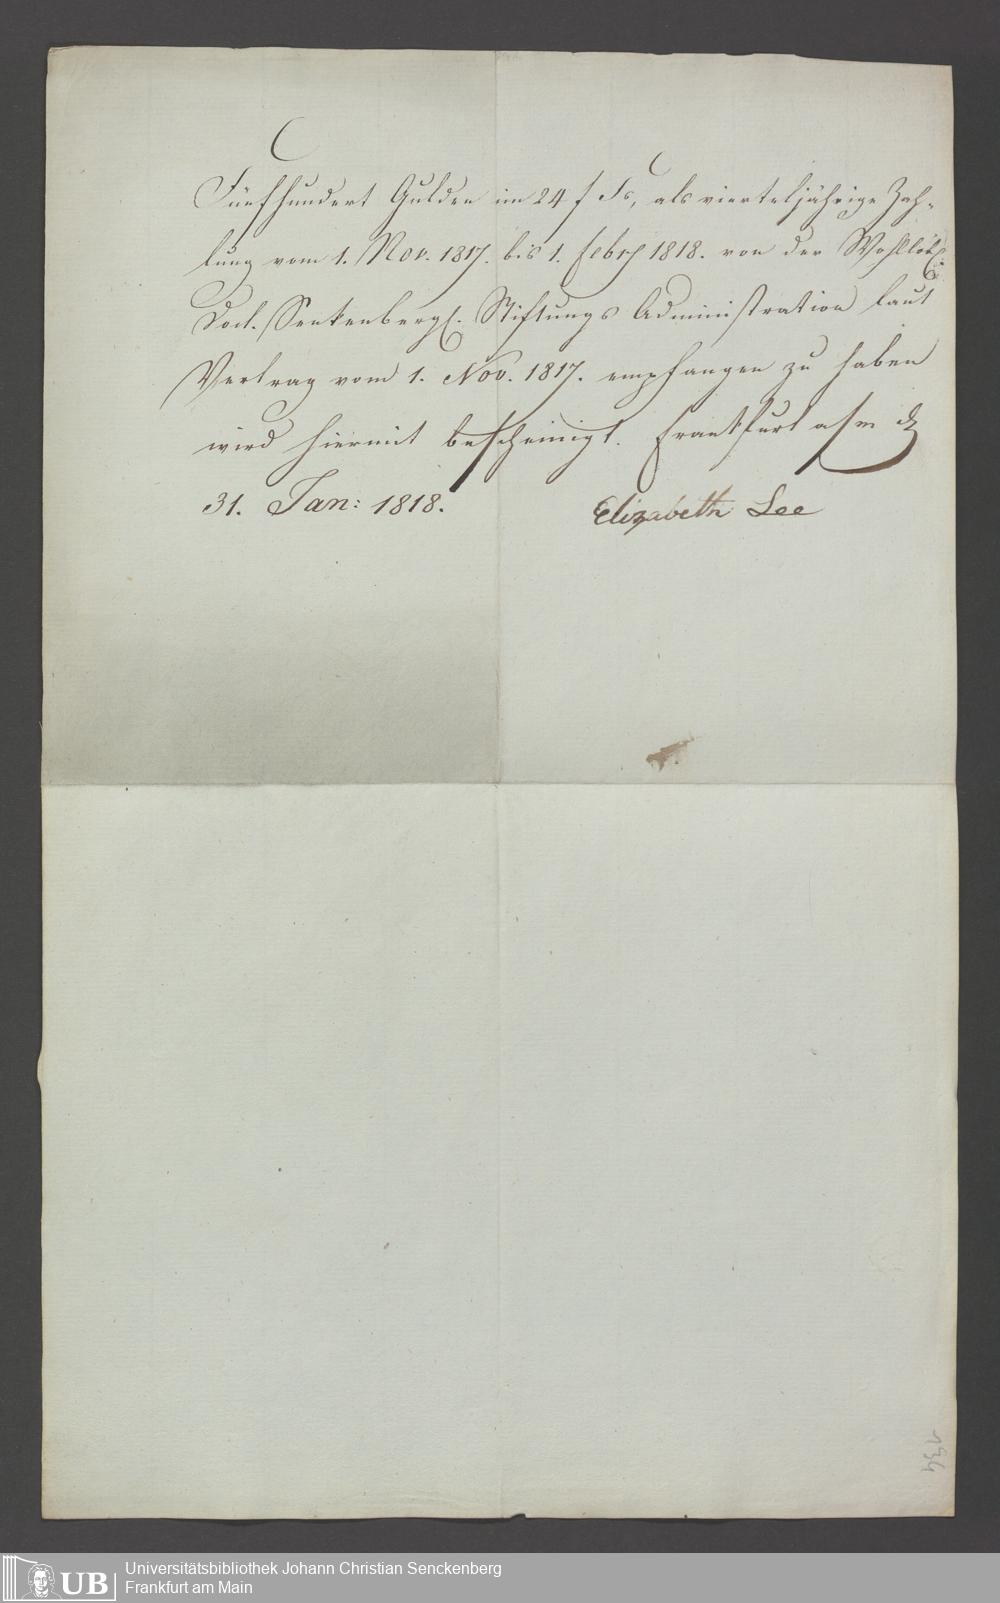 Fünfhundert Gulden im 24 f Fs, als vierteljährige Zah-
lung vom 1. Nov. 1817. bis 1. Febrʒ 1818. von der Wohllöbl:
Doct. Senkenbergl. Stiftungs Administration laut
Vertrag vom 1. Nov. 1817. empfangen zu haben
wird hiermit bescheinigt. Frankfurt a/m d
31. Jan: 1818.
Elizabeth Lee
134
Universitätsbibliothek Johann Christian Senckenberg
Frankfurt am Main
UB